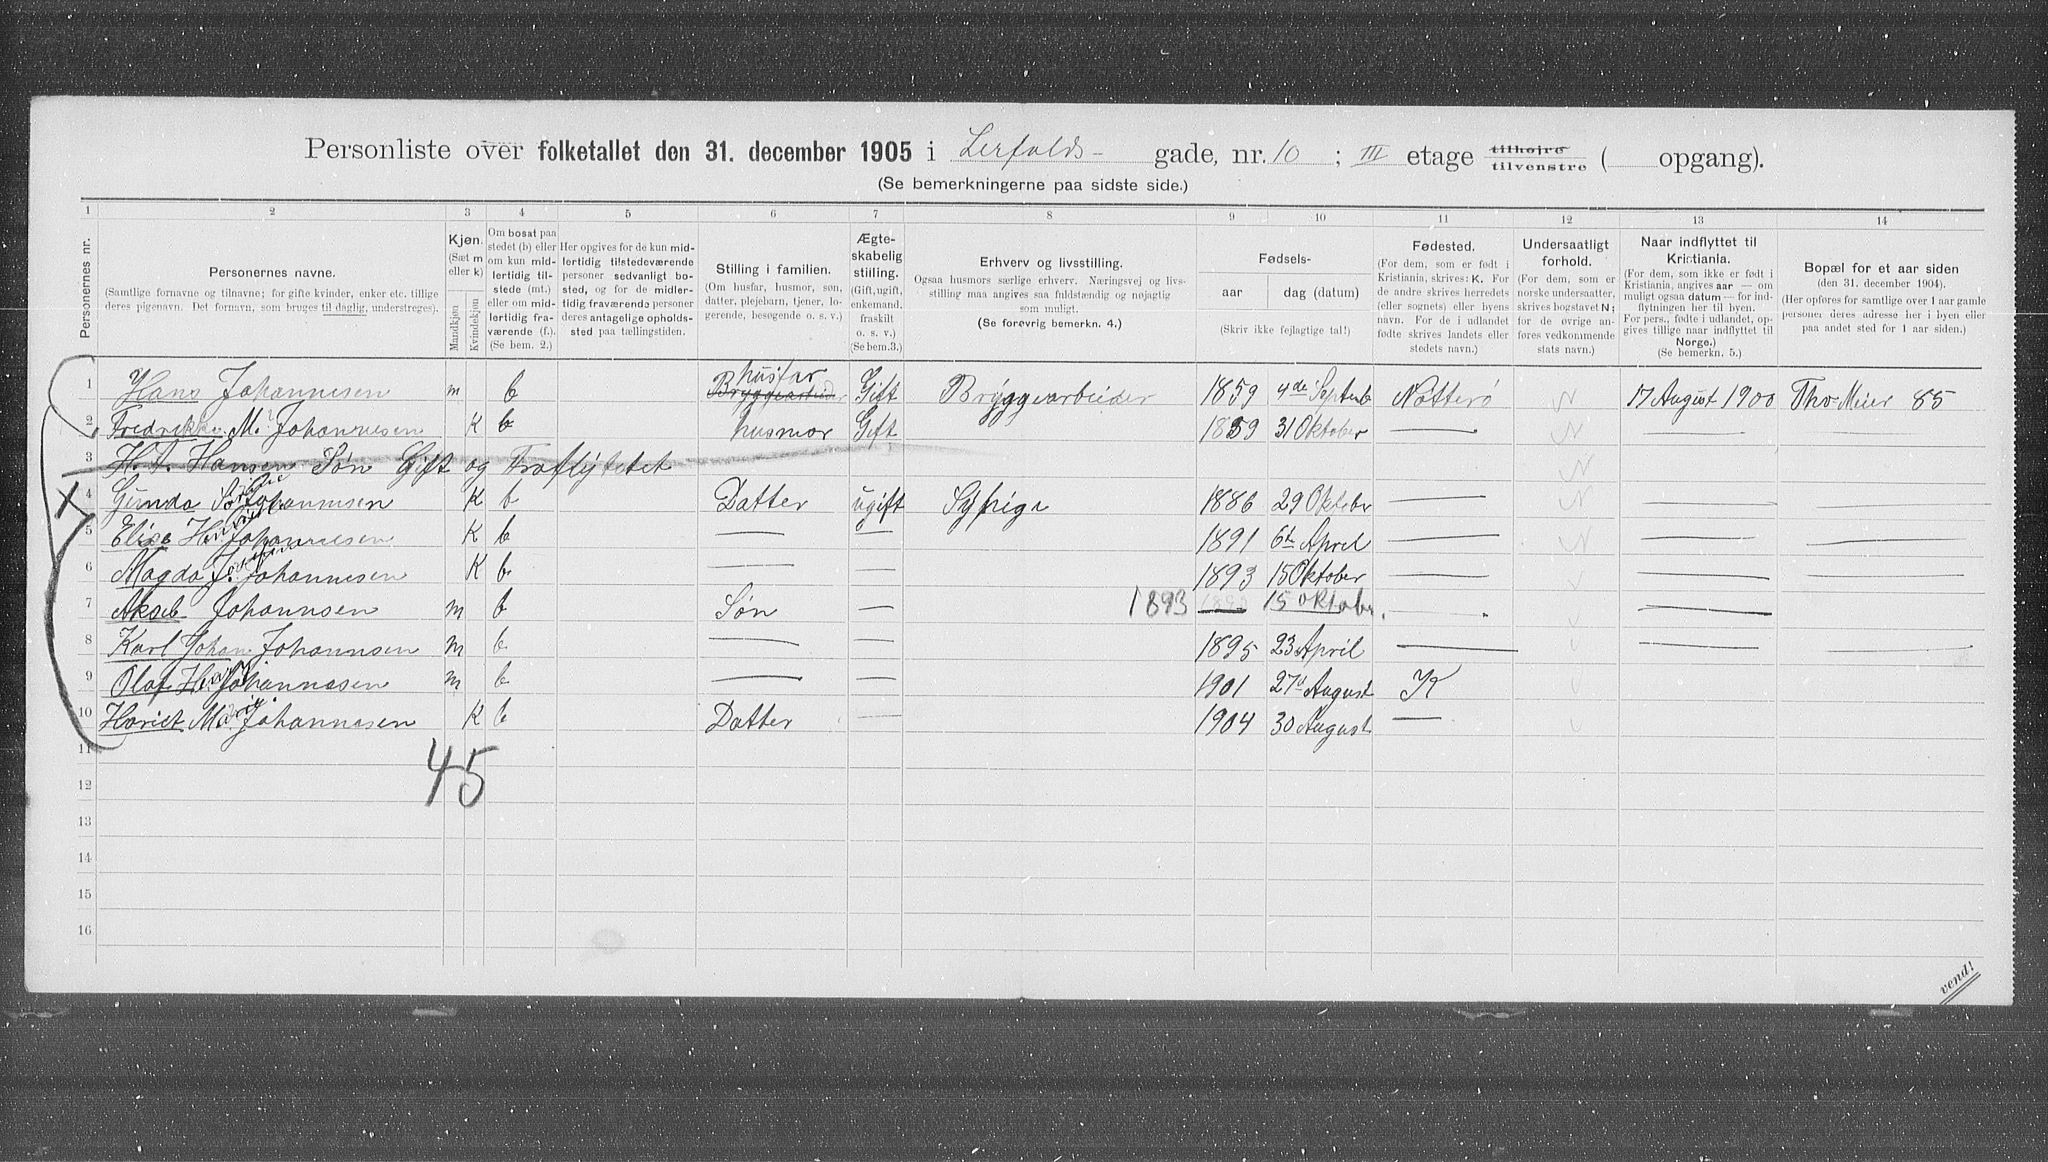 Personliste over folketallet den 31. december 1905 i Lerfalds- gade, nr. 10 ; III etage tilhøire tilvenstre ( opgang).
(Se bemerkningerne paa sidste side.)
1 2 3 4 5 6 7 8 9 10 11 12 13 14
Personernes nr.
Personernes navne.
(Samtlige fornavne og tilnavne; for gifte kvinder, enker etc. tillige
deres pigenavn. Det fornavn, som bruges til daglig, understreges).
Kjøn.
(Sæt m
eller k)
Mandkjøn
Kvindekjøn
Om bosat paa
stedet (b) eller
om kun mid-
lertidig til-
stede (mt.)
eller om mid-
lertidig fra-
værende (f.).
(Se bem. 2.)
Her opgives for de kun mid-
lertidig tilstedeværende
personer sedvanligt bo-
sted, og for de midler-
tidig fraværende personers
deres antagelige opholds-
sted paa tællingstiden.
Stilling i familien.
(Om husfar, husmor, søn,
datter, plejebarn, tjener, lo-
gerende, besøgende o. s. v.)
Ægte-
skabelig
stilling.
(Gift, ugift,
enkemand,
fraskilt
o. s. v.)
(Se bem. 3.)
Erhverv og livsstilling.
Ogsaa husmors særlige erhverv. Næringsvej og livs-
stilling maa angives saa fuldstændig og nøjagtig
som muligt.
(Se forøvrig bemerkn. 4.)
Fødsels-
aar dag (datum)
(Skriv ikke fejlagtige tal!)
Fødested.
(For dem, som er født i
Kristiania, skrives: K. For
de andre skrives herredets
(eller sognets) eller byens
navn. For de i udlandet
fødte skrives landets eller
stedets navn.)
Undersaatligt
forhold.
(For dem, som er
norske undersaatter,
skrives bogstavet N;
for de øvrige an-
føres vedkommende
stats navn.)
Naar indflyttet til
Kristiania.
(For dem, som ikke er født i
Kristiania, angives aar — om
muligt ogsaa datum — for ind-
flytningen her til byen.
For pers., fødte i udlandet, op-
gives tillige naar indflyttet til
Norge.)
(Se bemerkn. 5.)
Bopæl for et aar siden
(den 31. december 1904).
(Her opføres for samtlige over 1 aar gamle
personer deres adresse her i byen eller
paa andet sted for 1 aar siden.)
1 Hans Johannesen m b husfar Bryggearbeider Gift Bryggearbieder 1859 4de Septemb Nøtterø N 17 August 1900 Tho Meier 85
2 Fredrikke M. Johannesen K b husmor Gift 1859 31 Oktober — N — —
3 H. A. Hansen Søn Gift og Fraflyttet N
4 Gunda Sofine Johannesen K b Datter ugift Sypige 1886 29 Oktober — N — —
5 Elise Johannesen K b — — 1891 6te April — N — —
6 Magda Josefine Johannesen K b — — 1893 15 Oktober — — —
7 Aksel Johannsen m b Søn — 1893 15 Oktober — — —
8 Karl Johan Johannsen m b — 1895 23 April — — —
9 Olaf Johannesen m b — 1901 27d August K
10 Hariet Marie Johannesen K b Datter — 1904 30 August —
11
45
12
13
14
15
16
vend!